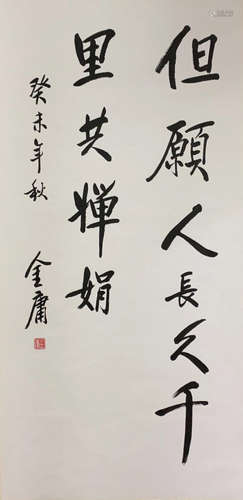 但願人長久千
里共嬋娟
癸未年秋
金庸